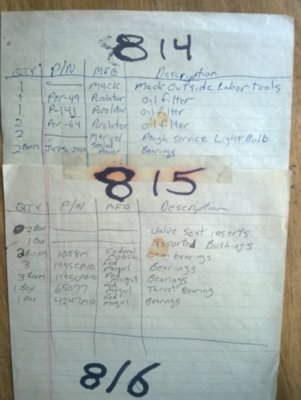 814
QTY P/N MFG Description
1 Mack Mack Outside Labor Tools
1 Per-49 Purolator oil filter
1 P-141 Purolator Oil filter
2 Per-64 Purolator oil filter
2 Rough Service Light Bulb
2 Boxes Power Bearings
815
QTY P/N MFG Description
2 Box Valve seat inserts
1 Box assorted Bushings
2 Boxes 1088M Federal Mogul cam bearings
3 1995CP10 Fed Mogul Bearings
3 Boxes Fed Mogul Bearings
1 Box 65077 Fed Mogul Thrust Bearing
1 Box 4247M10 Fed Mogul Bearings
816